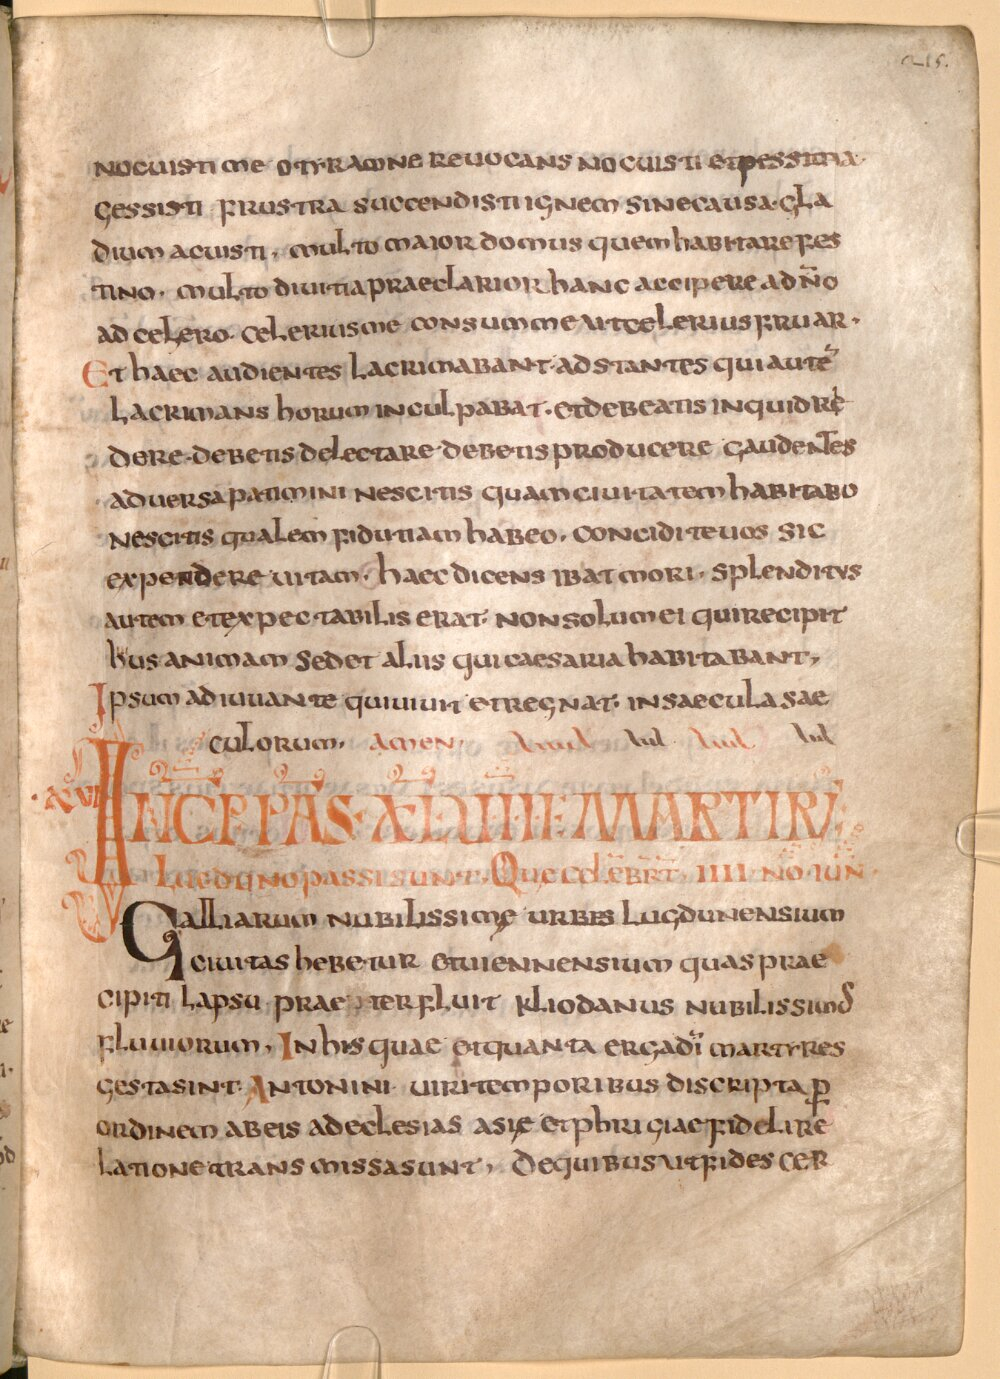 215.
nocuisti me o tyramne reuocans nocuisti et pessima
gessisti frustra succendisti ignem sine causa. gla
dium acuisti, multo maior domus quem habitare fes
tino. multo diuitia praeclarior hanc accipere a dn̄o
adcelero. celerius me consumme ut celerius fruar.
Et haec audientes lacrimabant adstantes qui autē
lacrimans horum inculpabat. et debeatis inquid rē
dere. debetis delectare debetis producere gaudentes
aduersa patimini nescitis quam ciuitatem habitabo
nescitis qualem fidutiam habeo. concidite uos sic
expendere uitam. haec dicens ibat mori. splenditus
autem et expectabilis erat. non solum ei qui recipit
hus animam sed et aliis qui caesaria habitabant,
Ipsum adiuuante qui uiuit et regnat. in saecula sae
culorum. amen.
.XVI. INCP PAS XLVIII MARTIRŪ
Lugduno passi sunt. Que celebrt IIII NO IUN
Galliarum nubilissime urbis lugdunensium
ciuitas hebetur et uiennensium quas prae
cipiti lapsu praeterfluit kliodanus nubilissimus
fluuiorum, In his quae et quanta erga dī martyres
gesta sint Antonini uiri temporibus discripta per
ordinem ab eis ad eclesias asię et phrigiae fideli re
latione transmissa sunt, De quibus ut fides cer